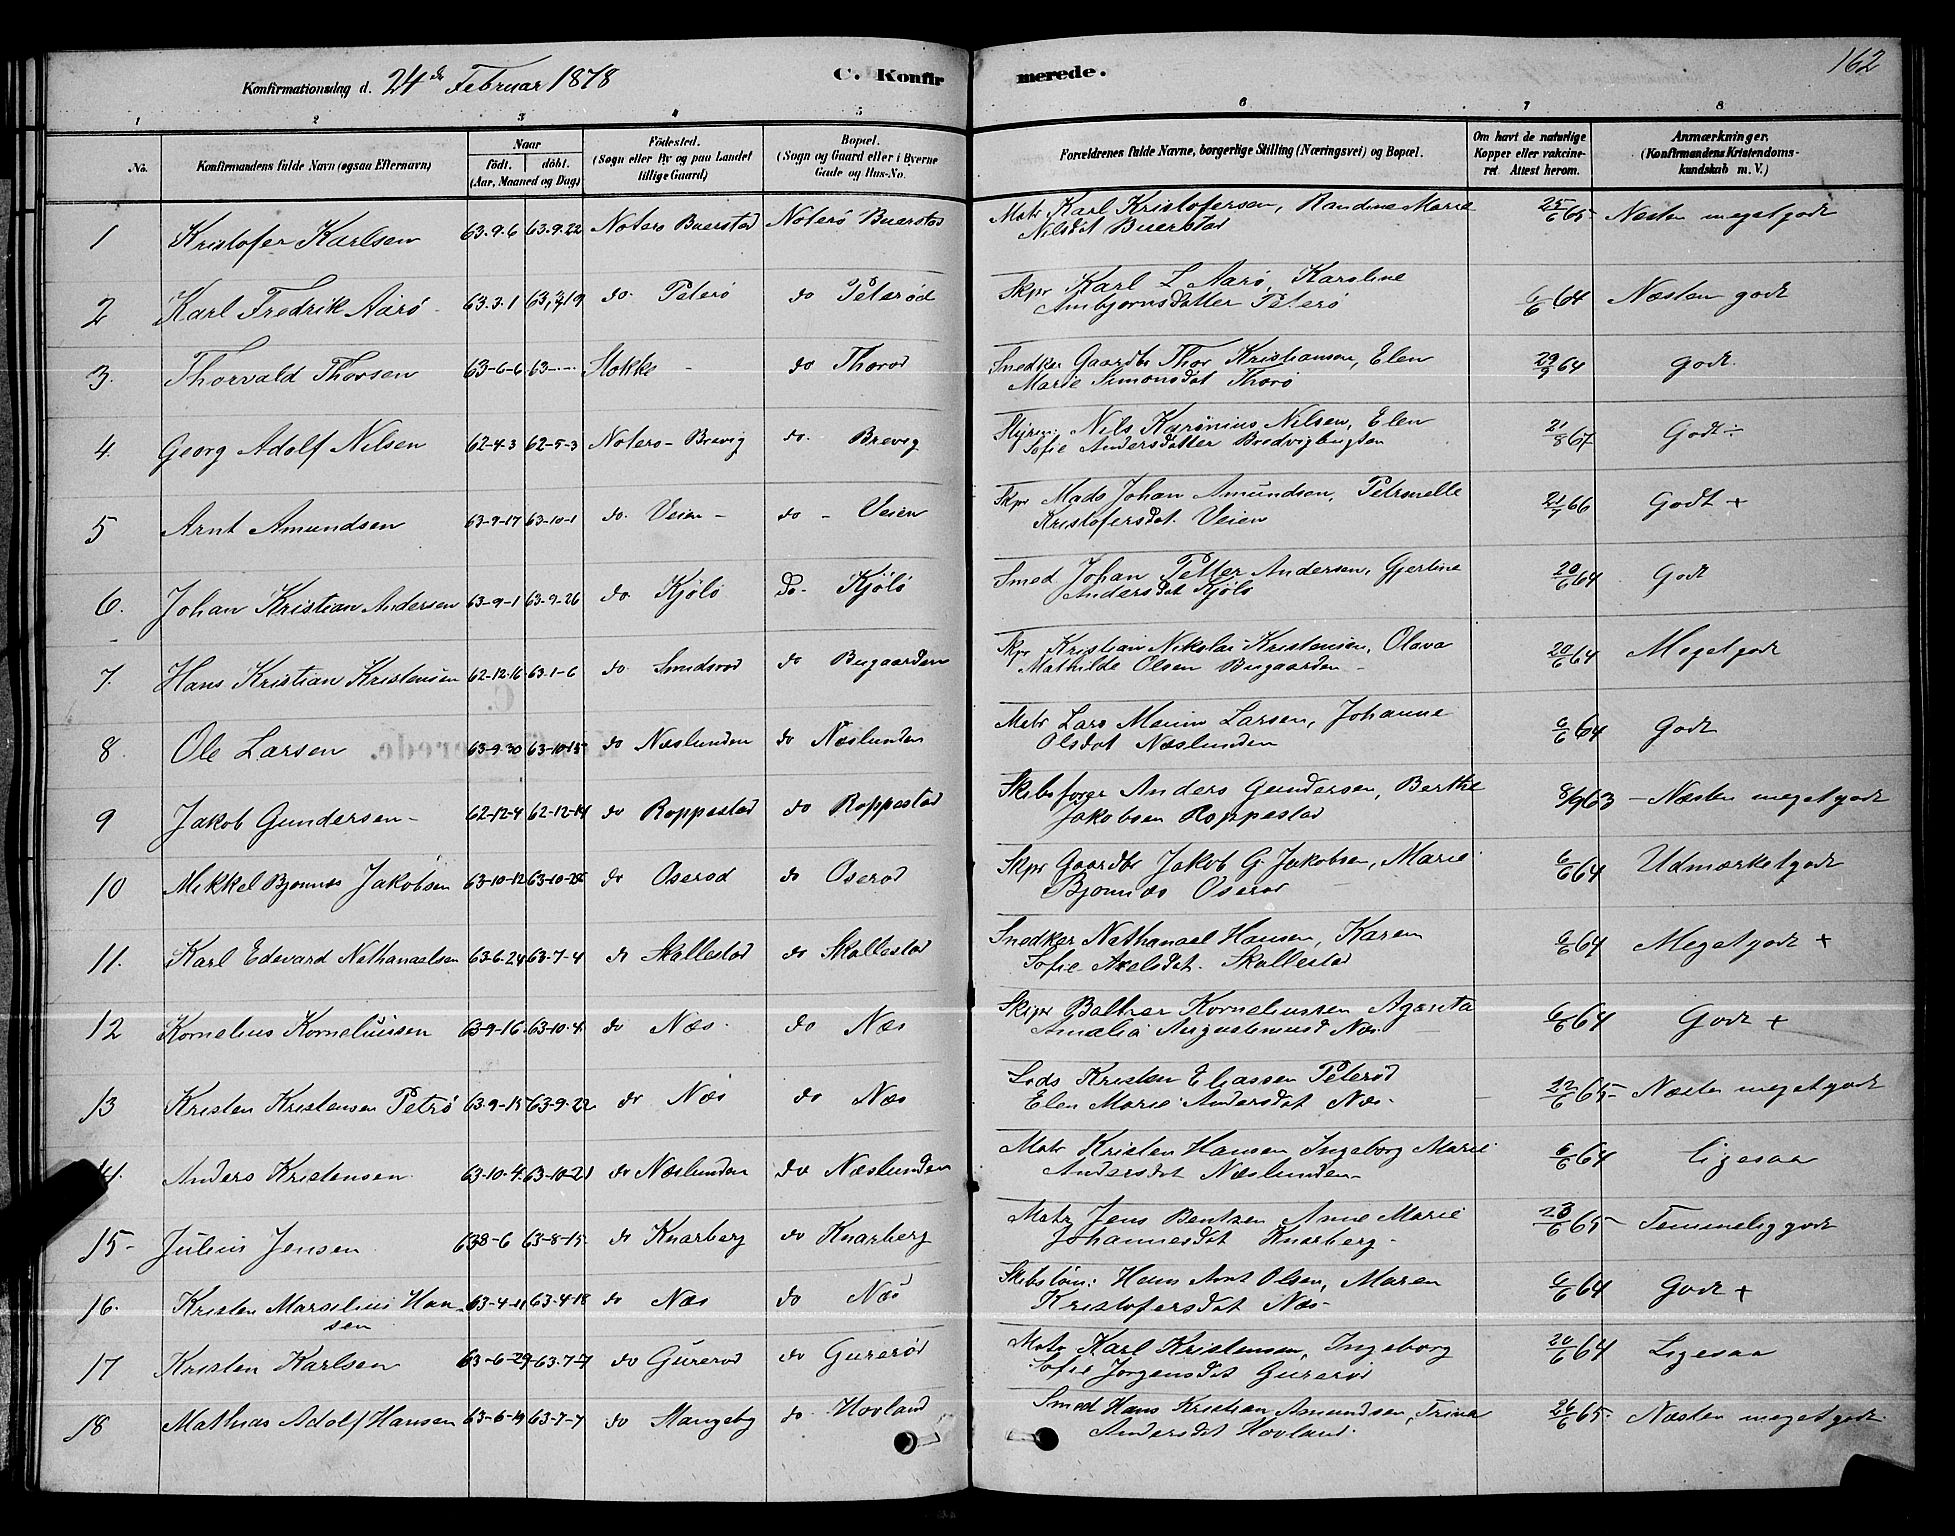 162
Konfirmationsdag d. 24de Februar 1878 C. Konfirmerede.
1 2 3 4 5 6 7 8
No. Konfirmandens fulde Navn (ogsaa Efternavn) Naar født. døbt. (Aar, Maaned og Dag) Fødested. (Sogn eller By og paa Landet tillige Gaard) Bopæl. (Sogn og Gaard eller i Byerne Gade og Hus-No. Forældrenes fulde Navne, borgerlige Stilling (Næringsvei) og Bopæl. Om havt de naturlige Kopper eller vakcineret. Attest herom. Anmærkninger. (Konfirmandens Kristendomskundskab m. V.)
1 Kristofer Karlsen 63.9.6 63.9.22 Noterø Buerstad Nøterø Buerstad Matr Karl Kristofersen, Randine Marie
Nilsdat Buerstad 25/6 65 Næsten meget godt
2 Karl Fredrik Aarø 63.3.1 63, 19 do. Peterø do Peterød Skpr Karl L Aarø, Karoline
Anbjørnsdatter Peterø 6/6 64 Næsten godt
3. Thorvald Thorsen 63-6-6 63- Stokke - do Thorød Snedker Gaardbr Thor Kristiansen, Elen
Marie Simonsdat Thorø 29/9 64 godt.
4. Georg Adolf Nilsen 62-4-3 62-5-3 Noterø - Brevig do. Brevig Styrm: Nils Karønius Nilsen, Elen
Sofie Andersdatter Bredvigbugten 21/8 67 Godt ÷
5 Arnt Amundsen 63-9-17 63-10-1 do. Veien - do - Veien Skpr Mads Johan Amundsen, Petronelle
Kristofersdat. Veien 21/7 66 Godt +
6. Johan Kristian Andersen 63-9-1 63-9-26 do Kjølø Do- Kjølø Smed Johan Petter Andersen, Gjerline
Andersdat Kjølø 20/6 64 Godt
7. Hans Kristian Kristensen 62-12-16 63-1-6 do Smidsrod do Bugaarden Skpr Kristian Nikolai Kristensen, Olava
Mathilde Olsen Bugaarden - 20/6 64 Meget godt
8. Ole Larsen 63-9-30 63-10-15 do Næslunden do Næslunden Matr Lars Larsen, Johanne
Olsdat Næslunden 6/6 64 Godt
9 Jakob Gundersen - 62-12-4 62-12-14 do Roppestad do Roppestad Skibsfører Anders Gundersen, Berthe
Jakobsen Roppestad 8/9 63 - Næsten meget godt
10 Mikkel Bjønnes Jakobsen 63-10-12 63-10-28 do Oserod do Oserod Skpr Gaardbr Jakob G. Jakobsen, Marie
Bjonnæs Oserod 6/6 64 Udmærket godt
11. Karl Edevard Nathanaelsen 63-6-24 63-7-4 do Skallestad do Skallestad Snedker Nathanael Hansen, Karen
Sofie Axelsdat. Skallestad 6/6 64 Meget godt +
12 Kornelius Korneliussen 63-9-16 63-10-4 do Næs. do Næs Skipr Baltser Korneliussen Agneta
Amalia Næs 6/6 64 Godt +
13 Kristen Kristensen Petrø 63-9-15 63-9-22 do Næs do Næs Lods Kristen Eliassen Peterød
Elen Marie Andersdat Næs - 22/6 65 - Næsten meget godt
14. Anders Kristensen 63-10-4 63-10-21 do Næslunden do Næslunden Matr Kristen Hansen Ingeborg Marie
Andersdat Næslunden - 6/6 64 ligesaa
15 - Julius Jensen 63 8-6 63-8-15 do Knarberg do Knarberg Matr Jens Bentsen Anne Marie
Johannesdat Knarberg - 23/6 65 - Temmelig godt
16. Kristen Marselius Han-
sen 63-4-11 63-4-18 do Næs do Næs Skibstøm: Hans Arnt Olsen, Maren
Kristofersdat Næs - 6/6 64 Godt +
17 Kristen Karlsen 63-6-29 63-7-7 do Gurerod do Gurerød Matr Karl Kristensen, Ingeborg
Sofie Jorgensdat Gurerød 20/6 64 Ligesaa
18 Mathias Adolf Hansen 63-6-19 63-7-7 do Stangeby do Hovland Smed Hans Kristian Amundsen, Trine
Andersdat Hovland. 26/6 65. Næsten meget godt.